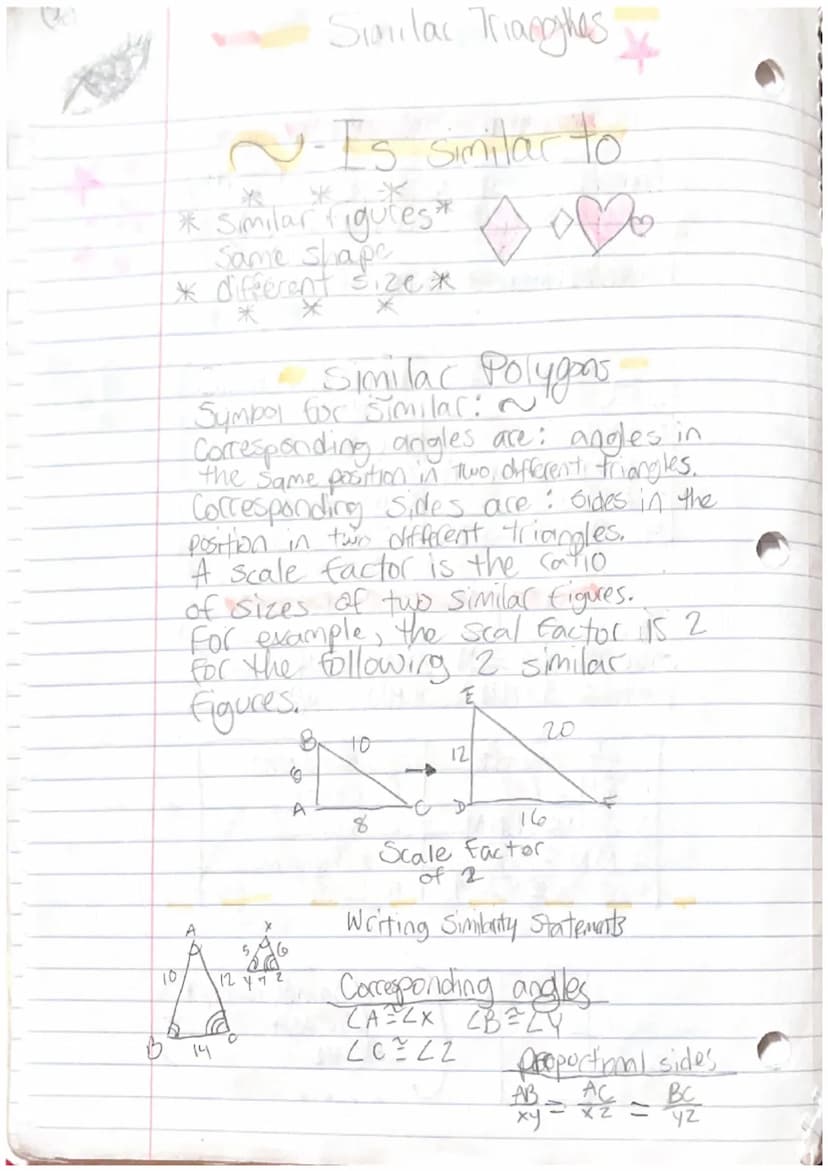 Similar Triangles
~ - Is similar to
* * *
* similar figures *
same shape
* different size *
* * *
Similar Polygons
Symbol for similar: ~
Corresponding angles are: angles in
the same position in two different triangles.
Corresponding sides are: sides in the
position in two different triangles.
A scale factor is the ratio
of sizes of two similar figures.
For example, the scal factor is 2
for the following 2 similar
figures.
E
B 10 20
6 12
A C D F
8 16
Scale Factor
of 2
Writing Similarity Statements
A X
5 6
10 12 Y 7 Z
B C
14
Corresponding angles
∠A≅∠X ∠B≅∠Y
∠C≅∠Z
Proportional sides
AB/XY = AC/XZ = BC/YZ